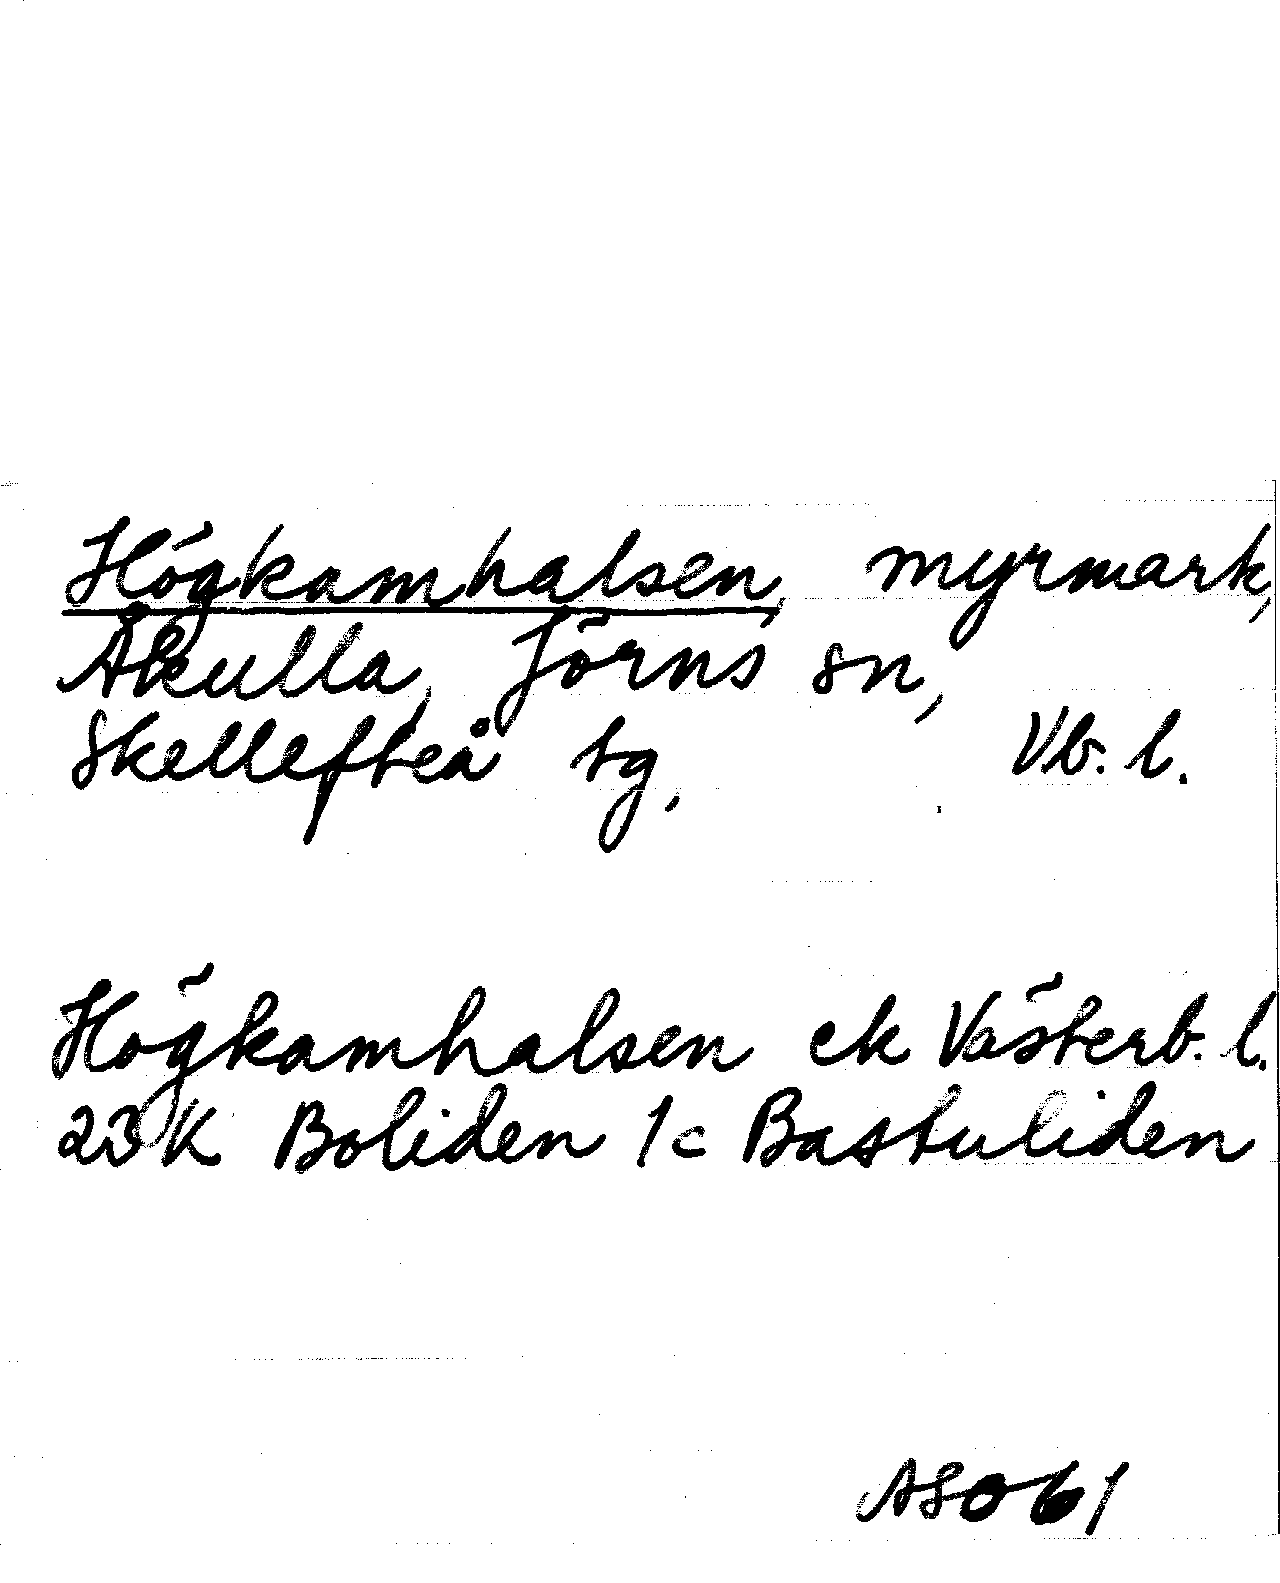 Högkamhalsen, myrmark,
Åkulla, Jörns sn,
Skellefteå tg, Vb. l.
Högkamhalsen ek Västerb. l.
23 K Boliden 1c Bastuliden
ASO 61